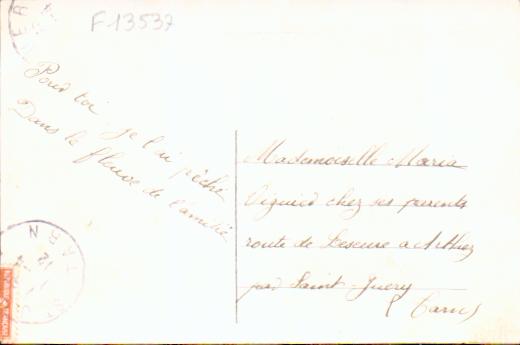 F-13537
Pour toi, je l'ai pêché
Dans le fleuve de l'amitié
Mademoiselle Maria
Viguier chez ses parents
route de Lescure a Arthez
par Saint-Juery
(Tarn)
TARN